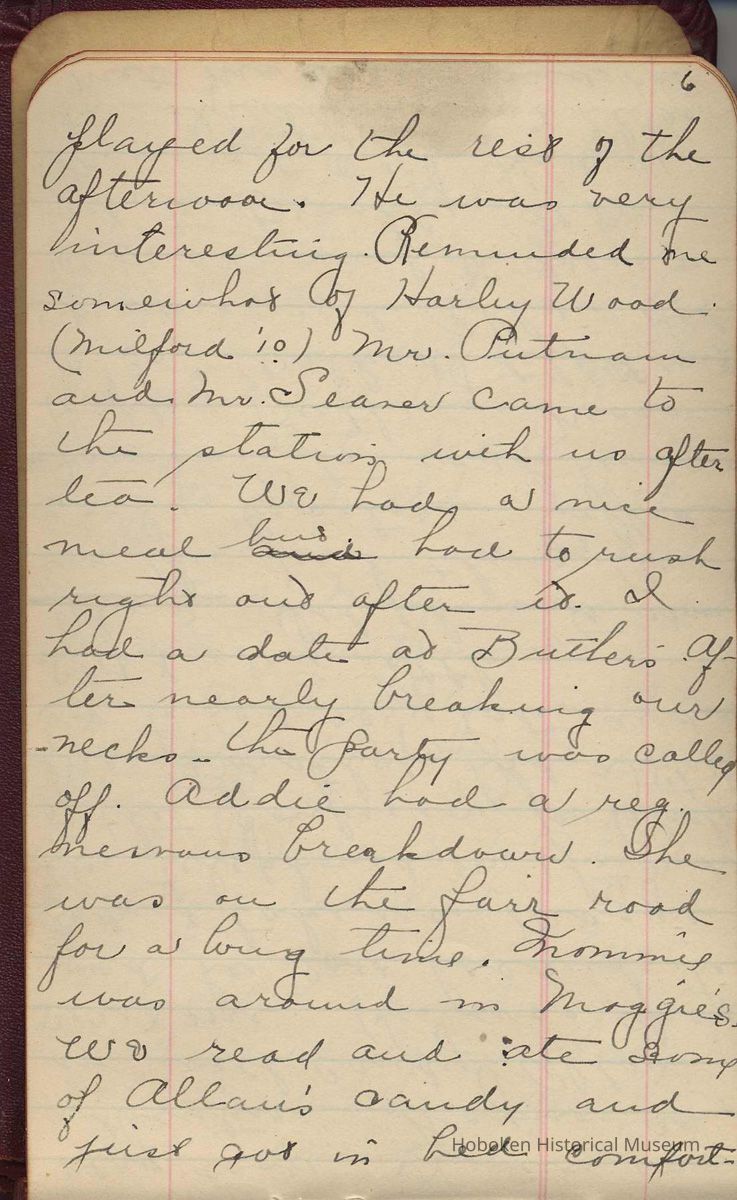 6
played for the rest of the
afternoon. He was very
interesting. Reminded me
somewhat of Harley Wood
(Milford '10) Mr. Putnam
and Mr. Seaver came to
the station with us after
tea. We had a nice
meal but and had to rush
right out after it. I
had a date at Butler's. Af-
ter nearly breaking our
necks - the party was called
off. Addie had a reg.
nervous breakdown. She
was on the road
for a long time. Mommie
was around in Maggie's.
We read and ate some
of Allan's candy and
just got in bed comfort-
Hoboken Historical Museum